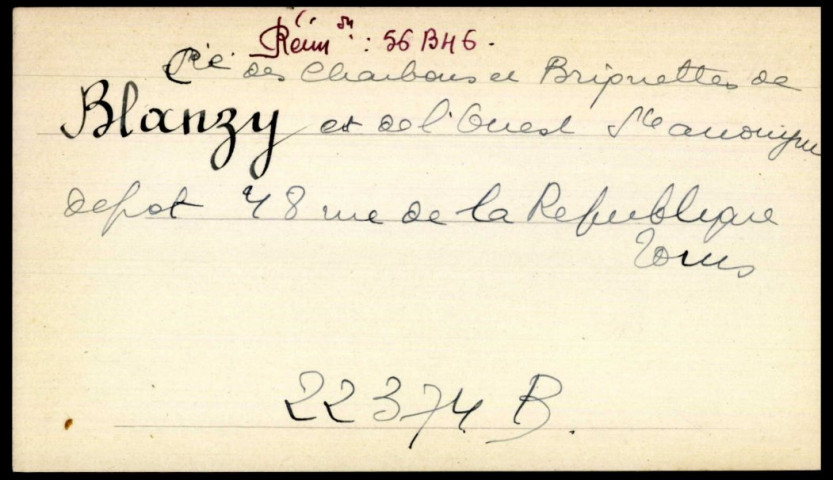 Réim ᵒⁿ : 56 B46.
Cie des Charbons et Briquettes de
Blanzy et de l'Ouest Ste anonyme
depot 48 rue de la Republique
Tours
22374 B.